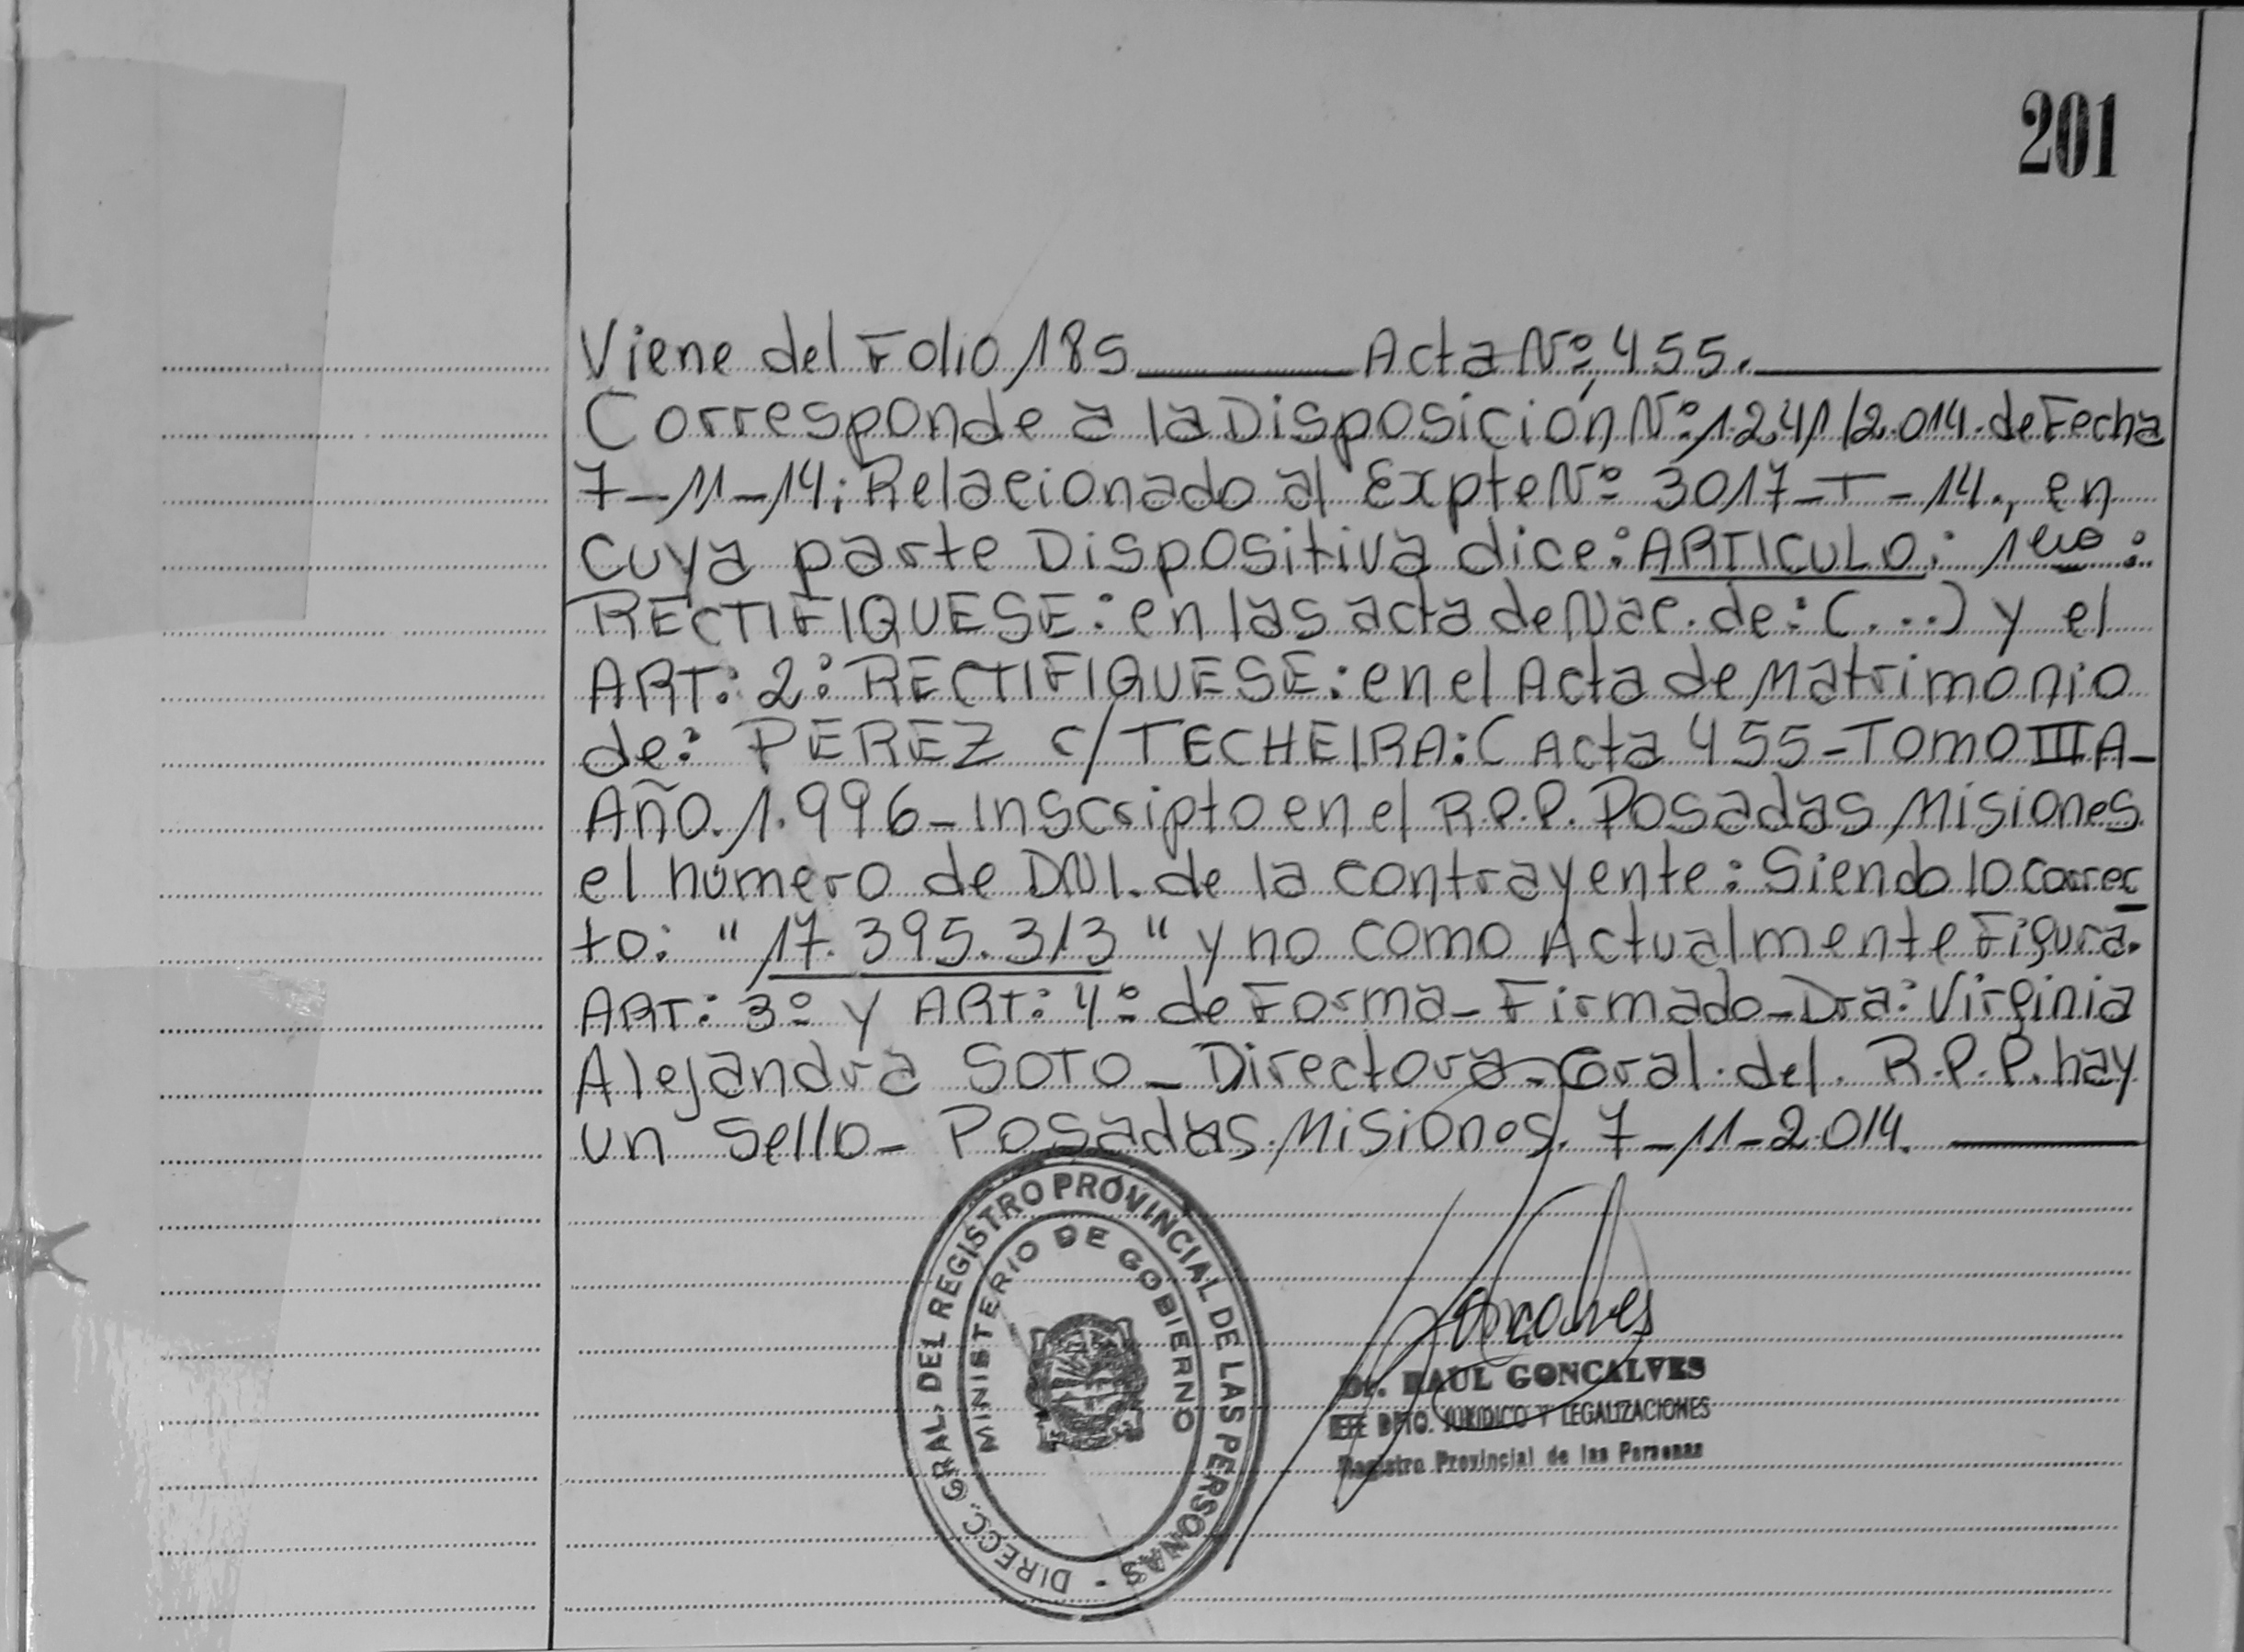 201
Viene del Folio 185 Acta Nº 455.
Corresponde a la Disposición Nº 1.241/2.014. de Fecha
7-11-14; Relacionado al Expte Nº 3017-T-14., en
cuya parte Dispositiva dice: ARTICULO: 1ero:
RECTIFIQUESE: en las acta de Nac. de: (...) y el
ART: 2: RECTIFIQUESE: en el Acta de Matrimonio
de: PEREZ c/ TECHEIRA: (Acta 455-Tomo III A-
Año. 1.996- Inscripto en el R.P.P. Posadas Misiones
el número de DNI. de la contrayente: Siendo lo correc
to: "17.395.313" y no como Actualmente Figura.
ART: 3º y ART: 4º de Forma- Firmado- Dra: Virginia
Alejandra SOTO- Directora- Gral. del. R.P.P. hay
un sello- Posadas. Misiones. 7-11-2.014.
DIRECC. GRAL. DEL REGISTRO PROVINCIAL DE LAS PERSONAS -
MINISTERIO DE GOBIERNO
Dr. RAUL GONCALVES
JEFE DPTO. JURIDICO Y LEGALIZACIONES
Registro Provincial de las Personas